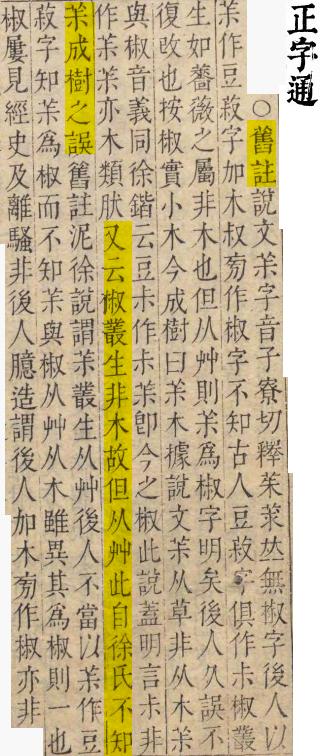 正字通
○舊註說文茮字音子寮切釋茱茮𠀤無椒字後人以
茮作豆菽字加木叔㫄作椒字不知古人豆菽字俱作尗椒叢
生如薔薇之屬非木也但从艸則茮爲椒字明矣後人久誤不
復改也按椒實小木今成樹曰茮木據說文茮从草非从木茮
與椒音義同徐鍇云豆尗作尗茮卽今之椒此說蓋明言尗非
作茮茮亦木類肰又云椒叢生非木故但从艸此自徐氏不知
茮成樹之誤舊註泥徐說謂茮叢生从艸後人不當以茮作豆
菽字知茮爲椒而不知茮與椒从艸从木雖異其爲椒則一也
椒屢見經史及離騷非後人臆造謂後人加木㫄作椒亦非